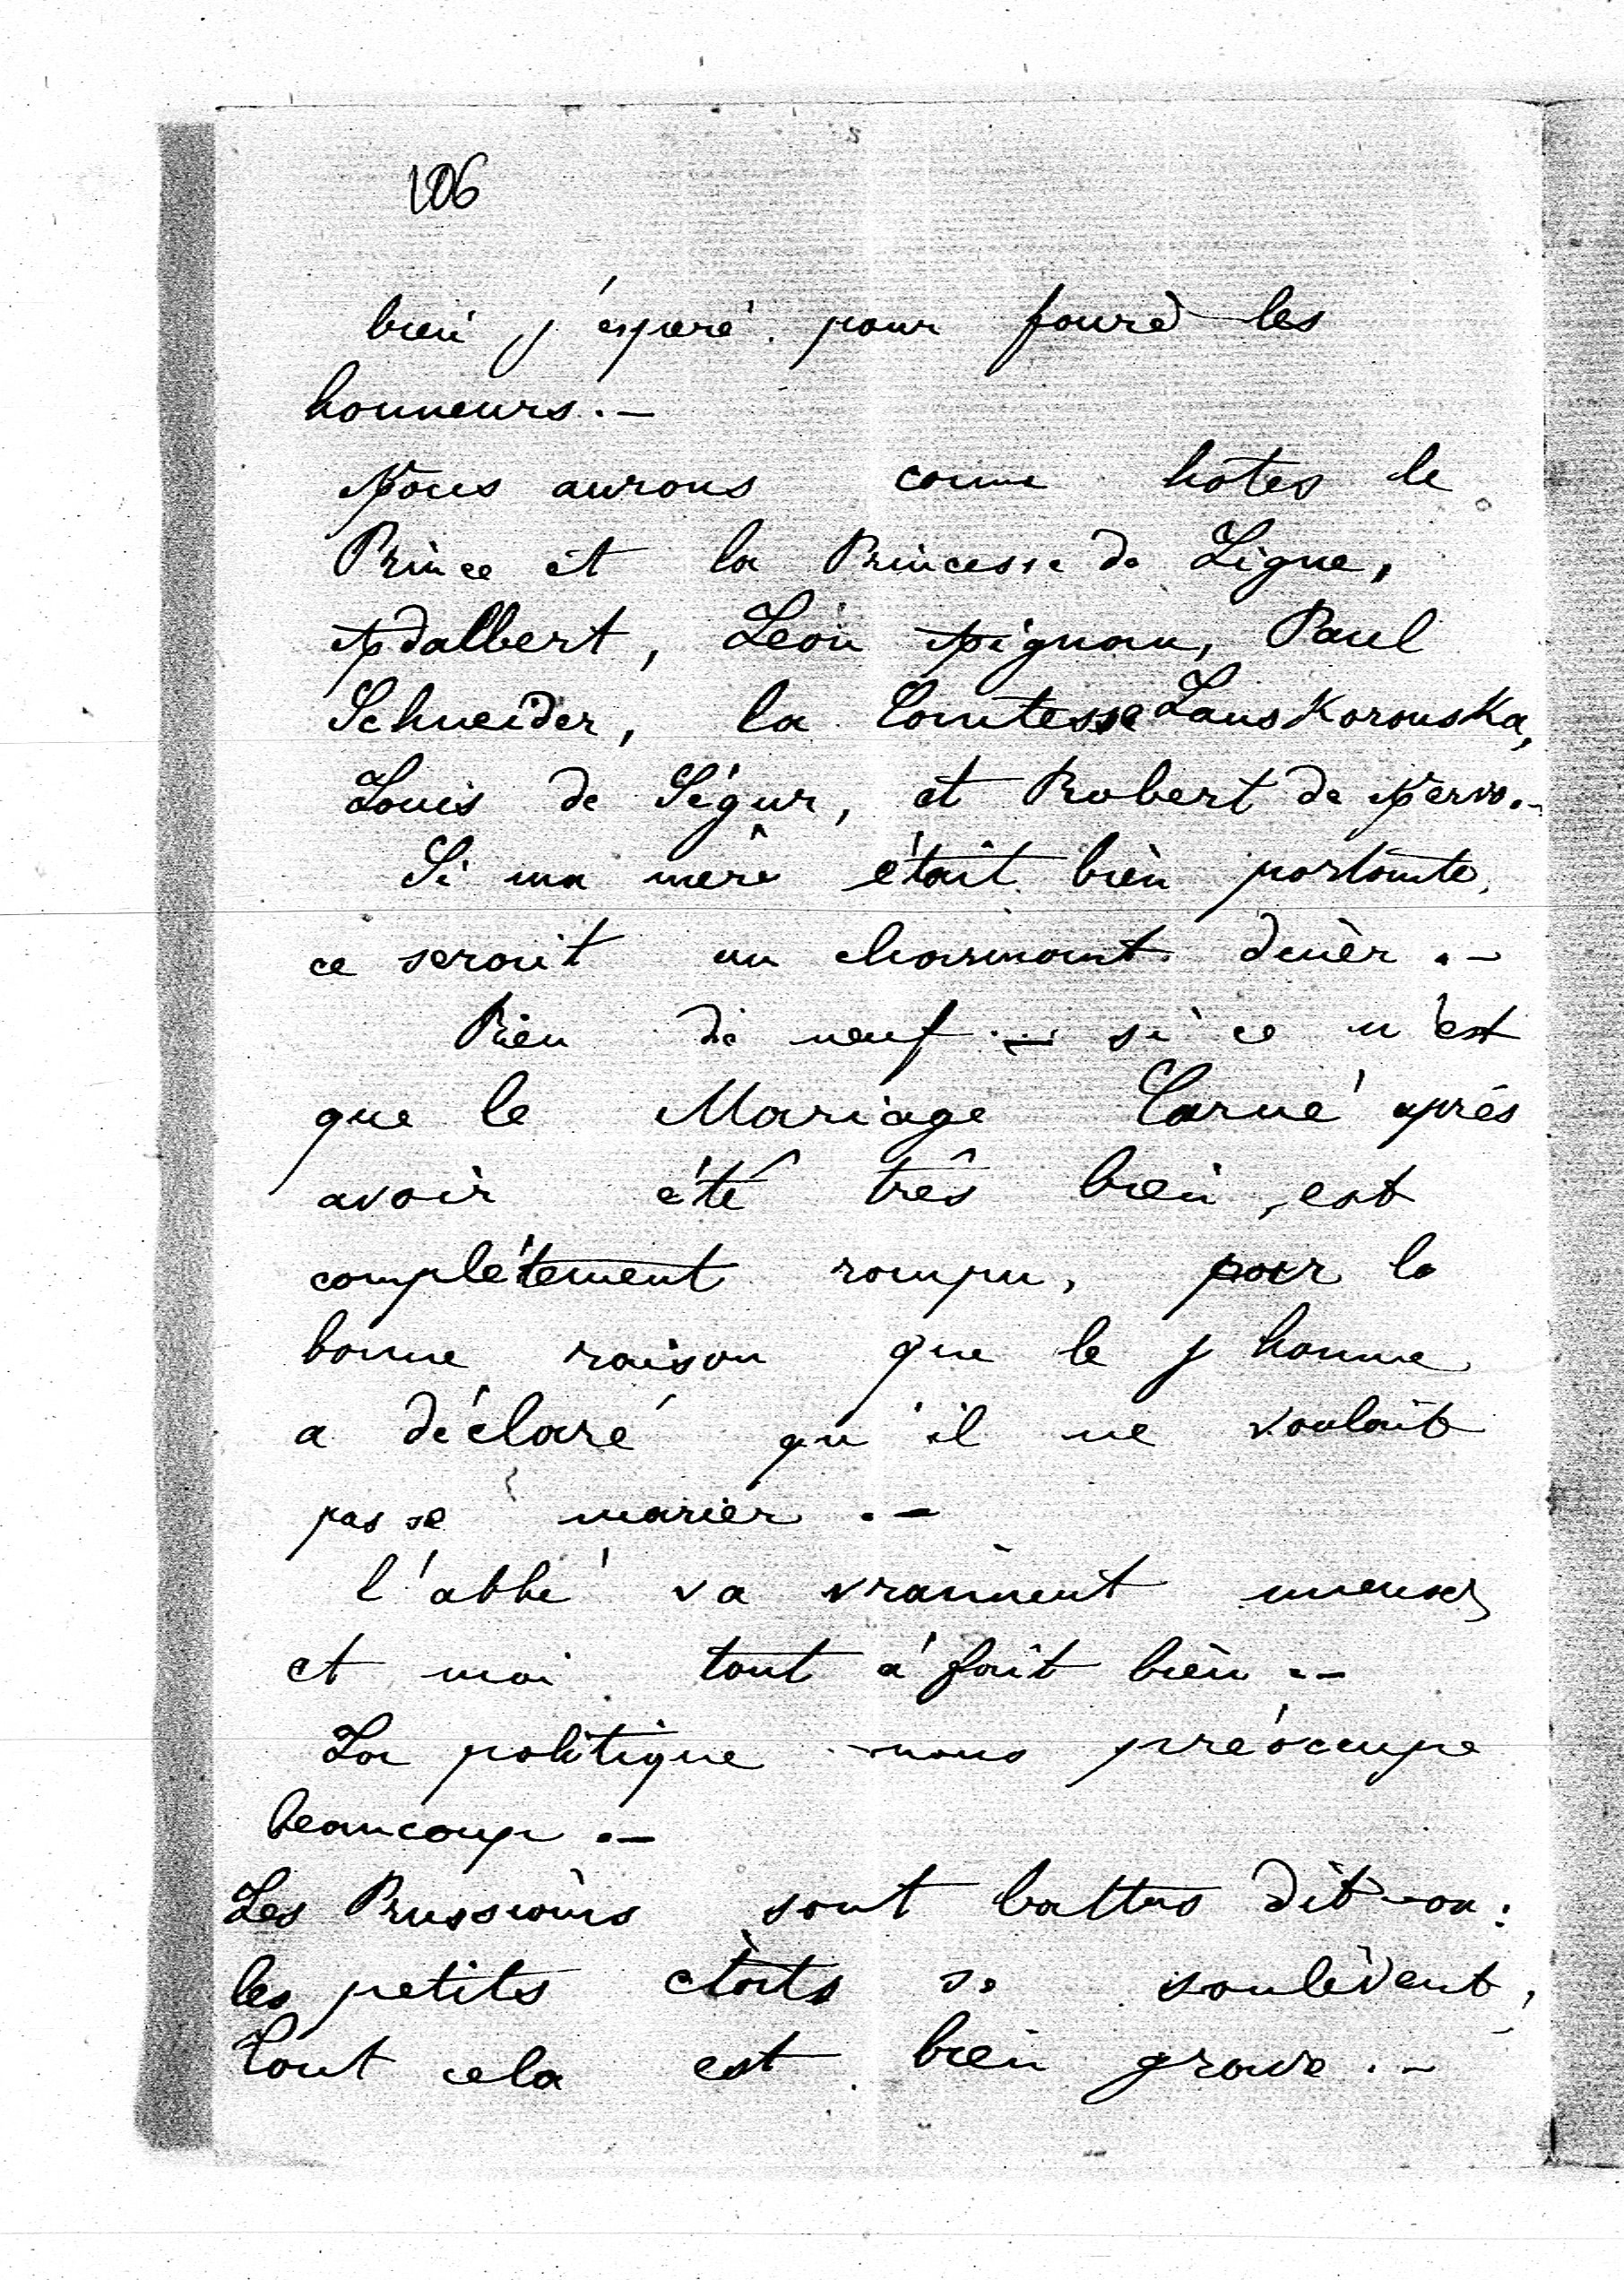 106
bien j'espère pour faire les
honneurs. _
Nous aurons comme hôtes le
Prince et la Princesse de Ligne,
Adalbert, Léon Pignan, Paul
Schneider, la Comtesse Lanskoronska,
Louis de Ségur, et Robert de Nervo. _
Si ma mère était bien portante,
ce serait un charmant dîner. _
Rien de neuf _ si ce n'est
que le Mariage Carné après
avoir été très bien, est
complètement rompu, pour la
bonne raison que le j homme
a déclaré qu'il ne voulait
pas se marier. _
l'abbé va vraiment mieux
et moi tout à fait bien. _
La politique nous préoccupe
beaucoup. _
Les Prussiens sont battus dit-on :
les petits états se soulèvent,
Tout cela est bien grave. _